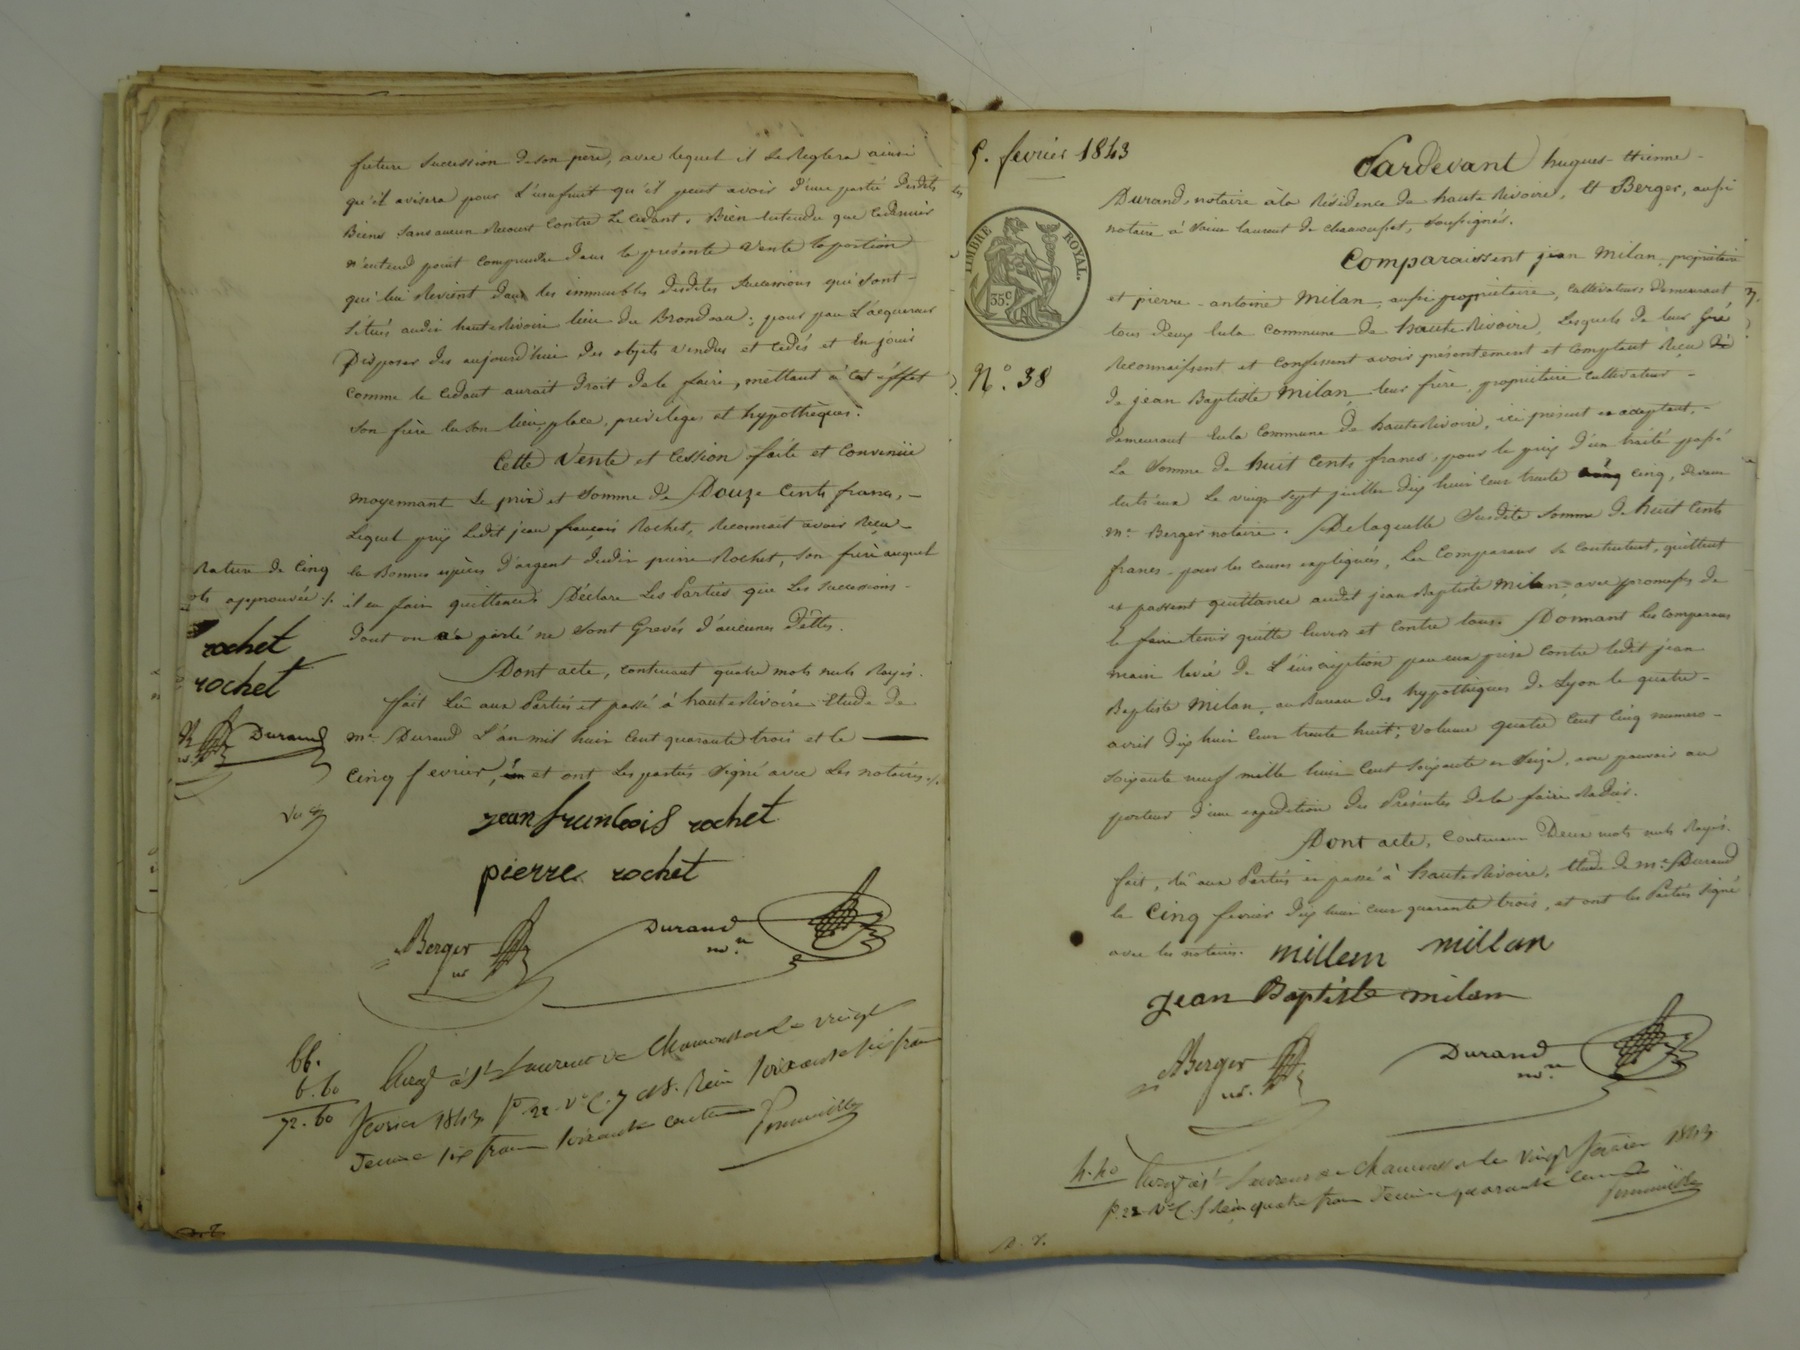 future succession de son père, avec lequel il se règlera ainsi
qu'il avisera pour l'usufruit qu'il peut avoir d'une partie desdits
Biens sans aucun recours contre le cédant. Bien entendu que ce dernier
n'entend point comprendre dans la présente vente la portion
qui lui revient dans les immeubles desdites successions qui sont
situés audit haute Rivoire lieu du Brondeau; pour par l'acquereur
Disposer des aujourd'hui des objets vendus et cédés et en jouir
comme le cédant aurait droit de le faire, mettant à cet éffet
son frère en son lieu, place, privilèges et hypothèques.
Cette Vente et Cession faite et convenüe
moyennant le prix et somme de Douze Cents francs,
Lequel prix ledit jean françois Rochet, Reconnait avoir Reçu
en Bonnes espèces d'argent dudit pierre Rochet, son frère auquel
il en fait quittance. Déclare les Parties que les successions
dont on a parlé ne sont Grevés d'aucunes Dêttes.
Dont acte, contenant quatre mots nuls Rayés.
fait Lû aux Parties et passé à haute Rivoire Etude de
me. Durand L'an mil huit Cent quarante trois et le
Cinq fevrier, et ont les parties signé avec les notaires.
Rature de Cinq
mots approuvée
rochet
rochet
Durand
Vu
jean franbois rochet
pierre rochet
Berger
nre
Durand
nore
66.
6.60
72.60
Enregé à St Laurent de Chamousset le vingt
fevrier 1843 fo 22 Vo C. 7 et 8. Reçu soixante six francs
Decime six francs soixante centimes
5. fevrier 1843
TIMBRE ROYAL.
35 c
No. 38
Pardevant hugues-Etienne
Durand, notaire à la Résidence de haute Rivoire, Et Berger, aussi
notaire à Saint laurent de chamousset, soussignés.
Comparaissent jean Milan, propriétaire
et pierre-antoine Milan, aussi propriétaire, cultivateurs demeurant
tous deux en la commune de haute Rivoire, Lesquels de leur Gré
Reconnaissent et confessent avoir présentement et comptant Reçu
de jean Baptiste Milan, leur frère, propriétaire cultivateur
demeurant en la Commune de haute Rivoire, ici présent et acceptant,
La Somme de huit Cents francs, pour le prix d'un traité passé
entr'eux le vingt sept juillet dix huit cent trente cinq, devant
me. Berger notaire. De laquelle susdite somme de huit Cents
francs pour les causes expliquées, Les Comparans se contentent, quittent
et passent quittance audit jean Baptiste Milan, avec promesse de
le faire tenir quitte envers et contre tous. Donnant les comparans
main levée de L'inscription par eux prise contre ledit jean
Baptiste Milan, au Bureau des hypothèques de Lyon le quatre
avril dix huit cent trente huit; volume quatre cent cinq numero
soixante neuf mille huit cent soixante et seize, avec pouvoir au
porteur d'une expédition des Présentes de la faire Radier.
Dont acte, contenant Deux mots nuls Rayés.
fait, lû aux Parties et passé à haute Rivoire, étude de me. Durand
le Cinq fevrier dix huit cent quarante trois, et ont les Parties signé
avec les notaires.
millem millan
jean Baptiste milan
Berger
nre.
Durand
nore
4.40
Enregé à St Laurent de Chamousset le vingt fevrier 1843
fo. 22 Vo C. 8 Reçu quatre francs Decime quarante centimes